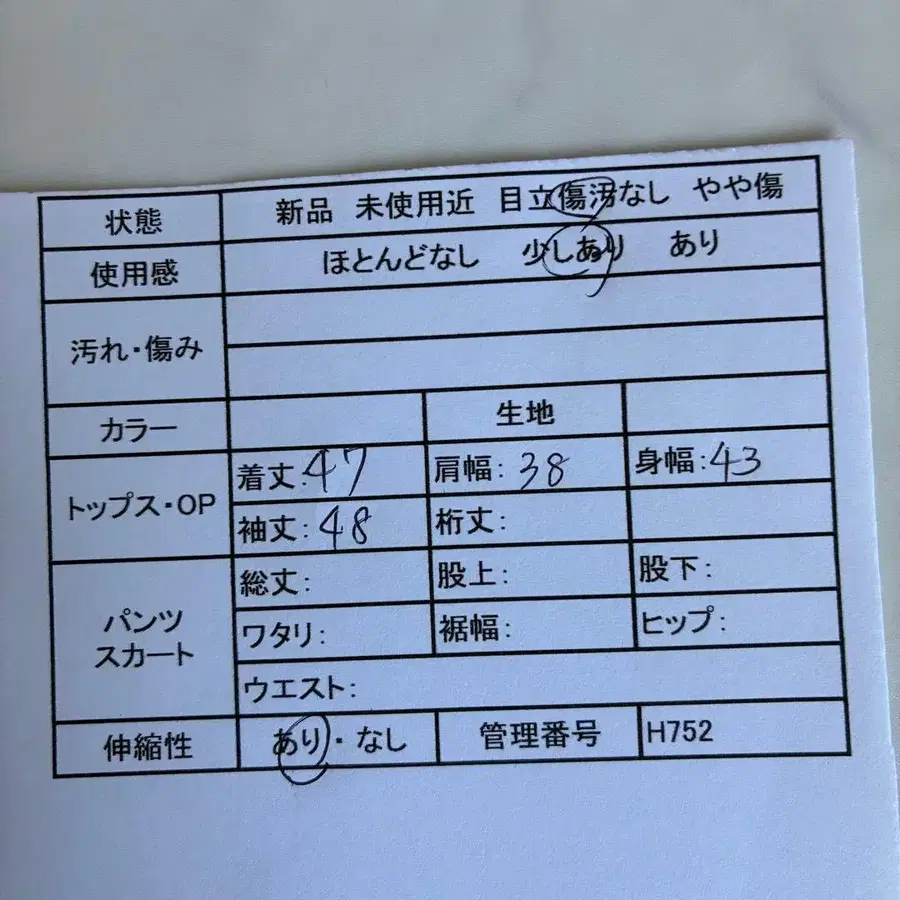 状態 新品 未使用近 目立傷汚なし やや傷
使用感 ほとんどなし 少しあり あり
汚れ・傷み
カラー 生地
トップス・OP 着丈:47 肩幅:38 身幅:43
袖丈:48 裄丈:
パンツ スカート 総丈: 股上: 股下:
ワタリ: 裾幅: ヒップ:
ウエスト:
伸縮性 あり・なし 管理番号 H752